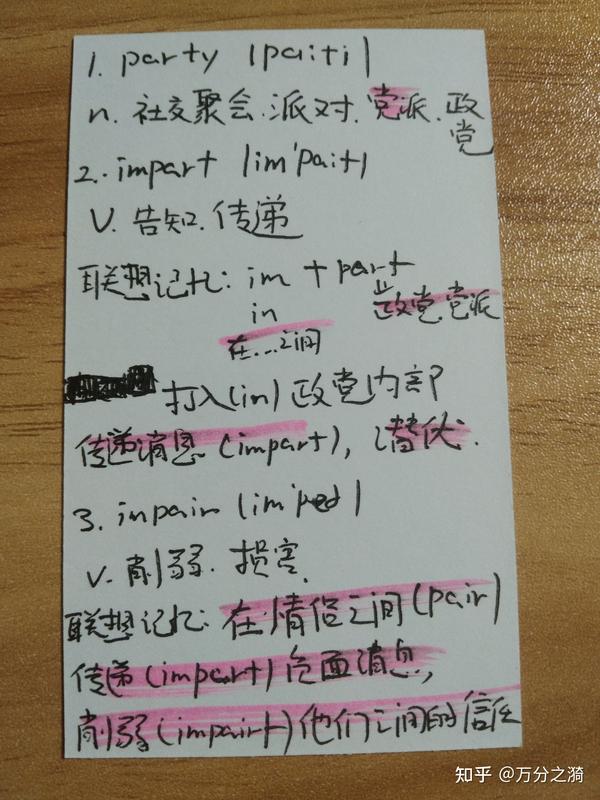 1. party |pa:ti|
n. 社交聚会.派对.党派.政党
2. impart |im'pa:t|
V. 告知.传递
联想记忆: im + part
in 政党.党派
在...之间
打入(in)政党内部
传递消息(impart), 潜伏.
3. impair |im'peə|
V. 削弱. 损害.
联想记忆: 在情侣之间(pair)
传递(impart)负面消息,
削弱(impairt)他们之间的信任
知乎 @万分之漪